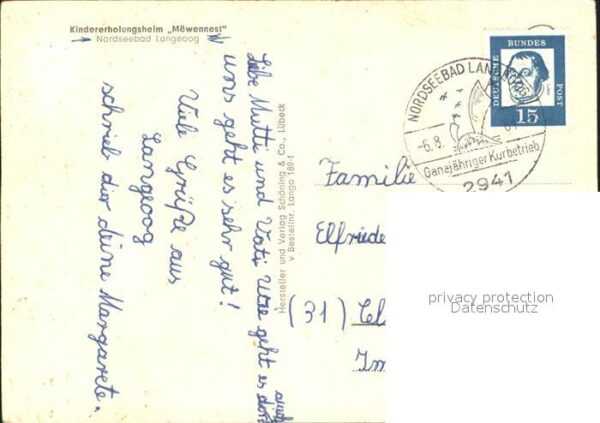 Kindererholungsheim „Möwennest"
Nordseebad Langeoog
Liebe Mutti und Vati Wie geht es dort
auch
uns geht es sehr gut!
Viele Grüße aus
Langeoog
schrieb dir deine Margarete.
Hersteller und Verlag Schöning & Co., Lübeck
v Bestellnr. Lango 189-f
NORDSEEBAD LANGEOOG
-6.8.
Ganzjähriger Kurbetrieb
2941
DEUTSCHE BUNDES POST
15
Familie
Elfriede
(31)
privacy protection
Datenschutz